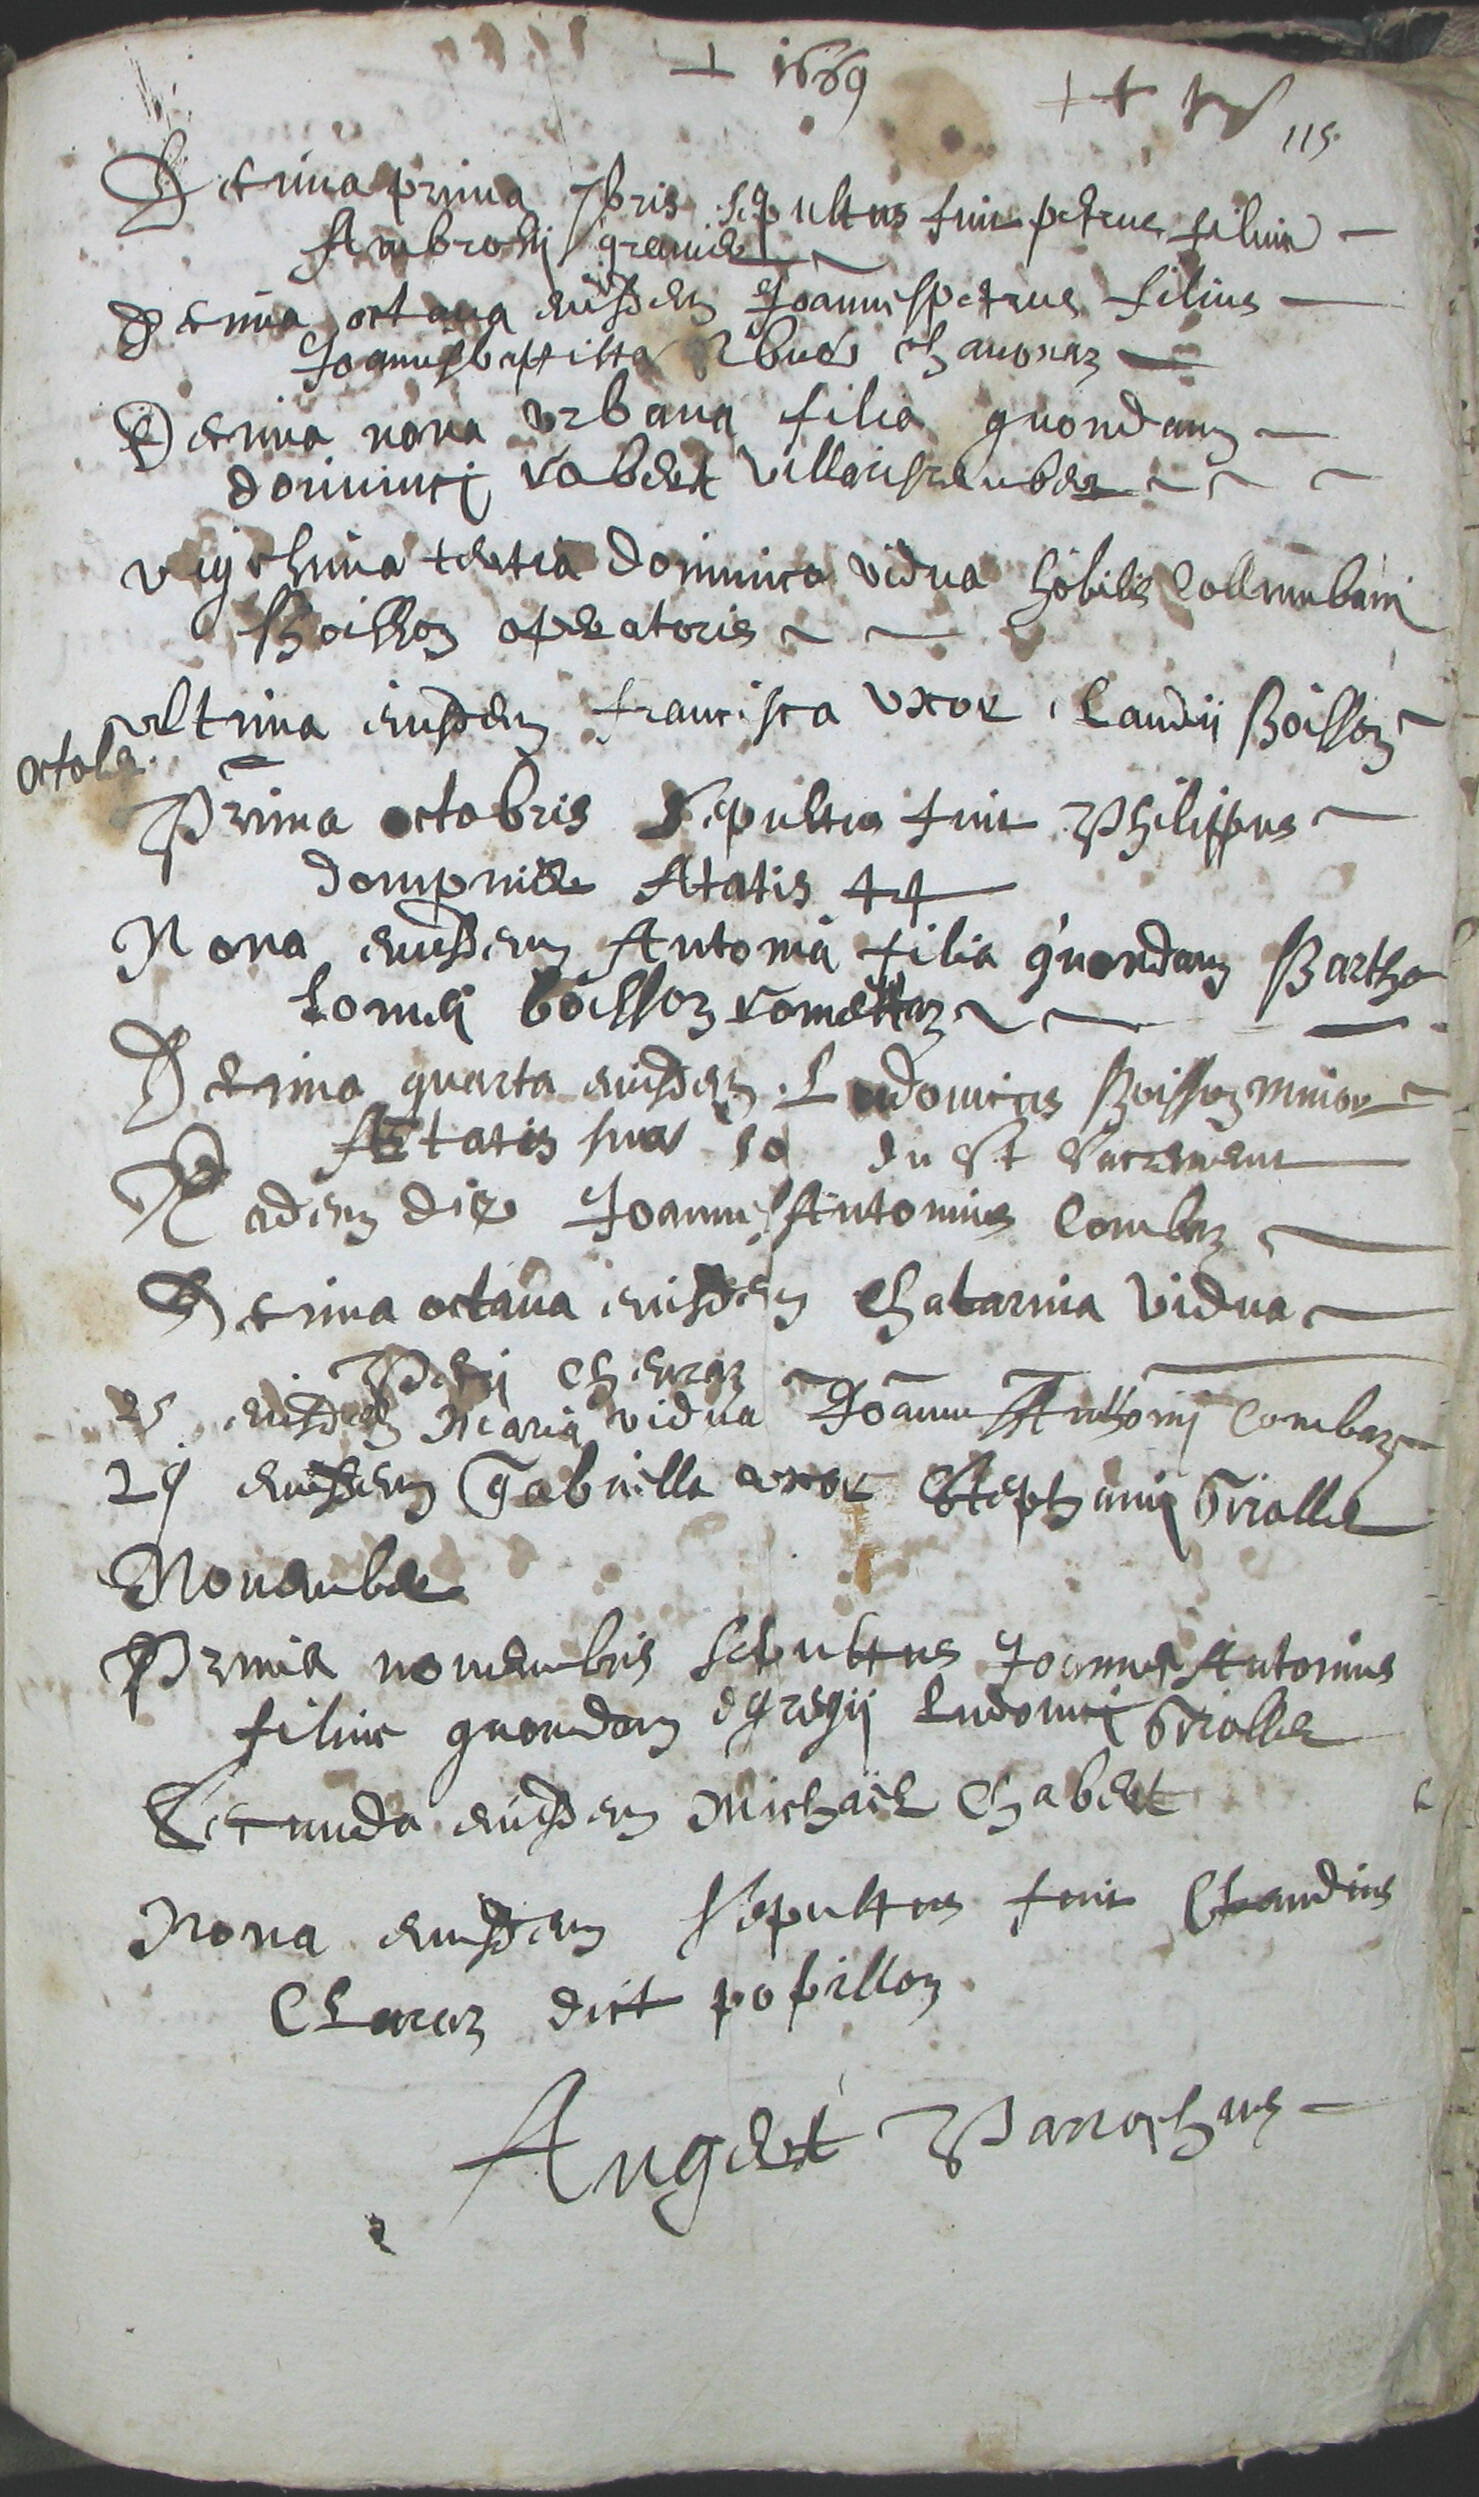 + 1669
115
Decima prima 7bris sepultus fuit petrus filius
Ambrosij grenier
Decima octava eiusdem Joannespetrus filius
Joannesbaptistae
Decima nona urbana filia quondam
dominici Vobert
vigesima tertia dominica vidua hobilis Collumbani
Boisson operatoris
ultima eiusdem francisca uxor Claudij Boisson
octobr.
Prima octobris sepultus fuit Philippus
Aetatis 44
Nona eiusdem Antonia filia quondam Bartho
lomei boisson
Decima quarta eiusdem Ludovicus Boisson minor
Aetatis suae 50 du St Sacrement
Eadem die Joannes Antonius Combaz
Decima octava eiusdem Chatarina vidua
Petri
25 eiusdem Maria vidua Joannis Anthonij Combaz
29 eiusdem Gabriella uxor Stephani Triollet
November
Prima novembris sepultus Joannes Antonius
filius quondam egregij Ludovici Triollet
Secunda eiusdem Michael Chabert
Nona eiusdem sepultus fuit Claudius
Claraz dict popillon
Anget Parrochus